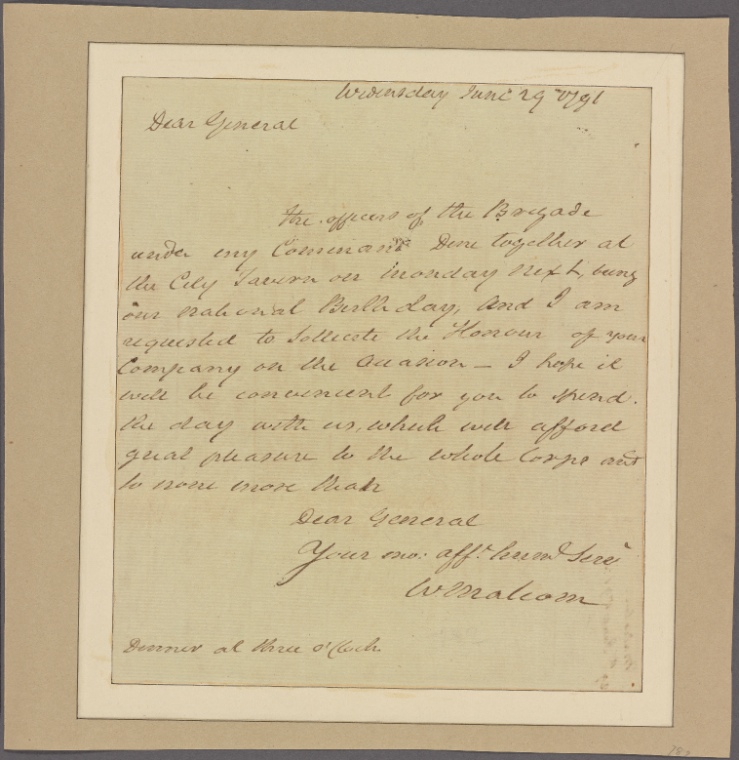 Wednesday June 29 1791
Dear General
the officers of the Brigade
under my Command Dine together at
the City Tavern on Monday next, being
our national Birth day, and I am
requested to Sollicite the Honour of your
Company on the Occasion – I hope it
will be convenient for you to spend
the day with us, which will afford
great pleasure to the whole Corps and
to none more than
Dear General
Your mo: afft. humd Servt
W Malcom
Dinner at three o'Clock